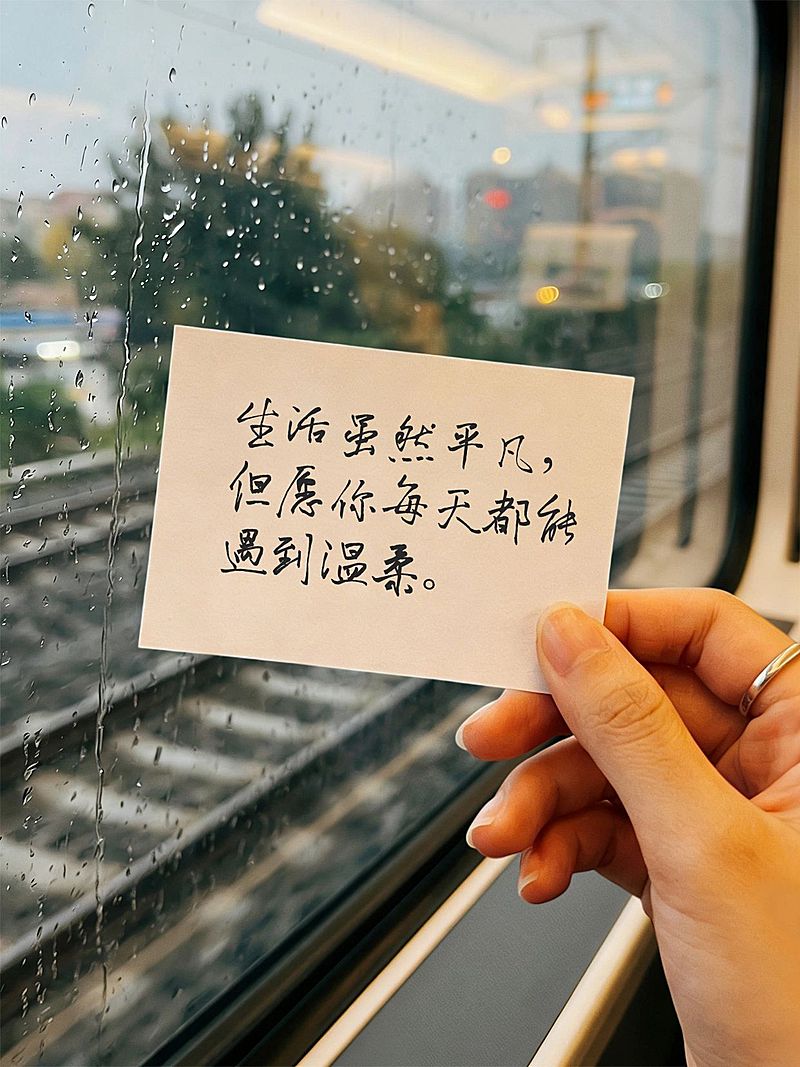 生活虽然平凡，
但愿你每天都能
遇到温柔。